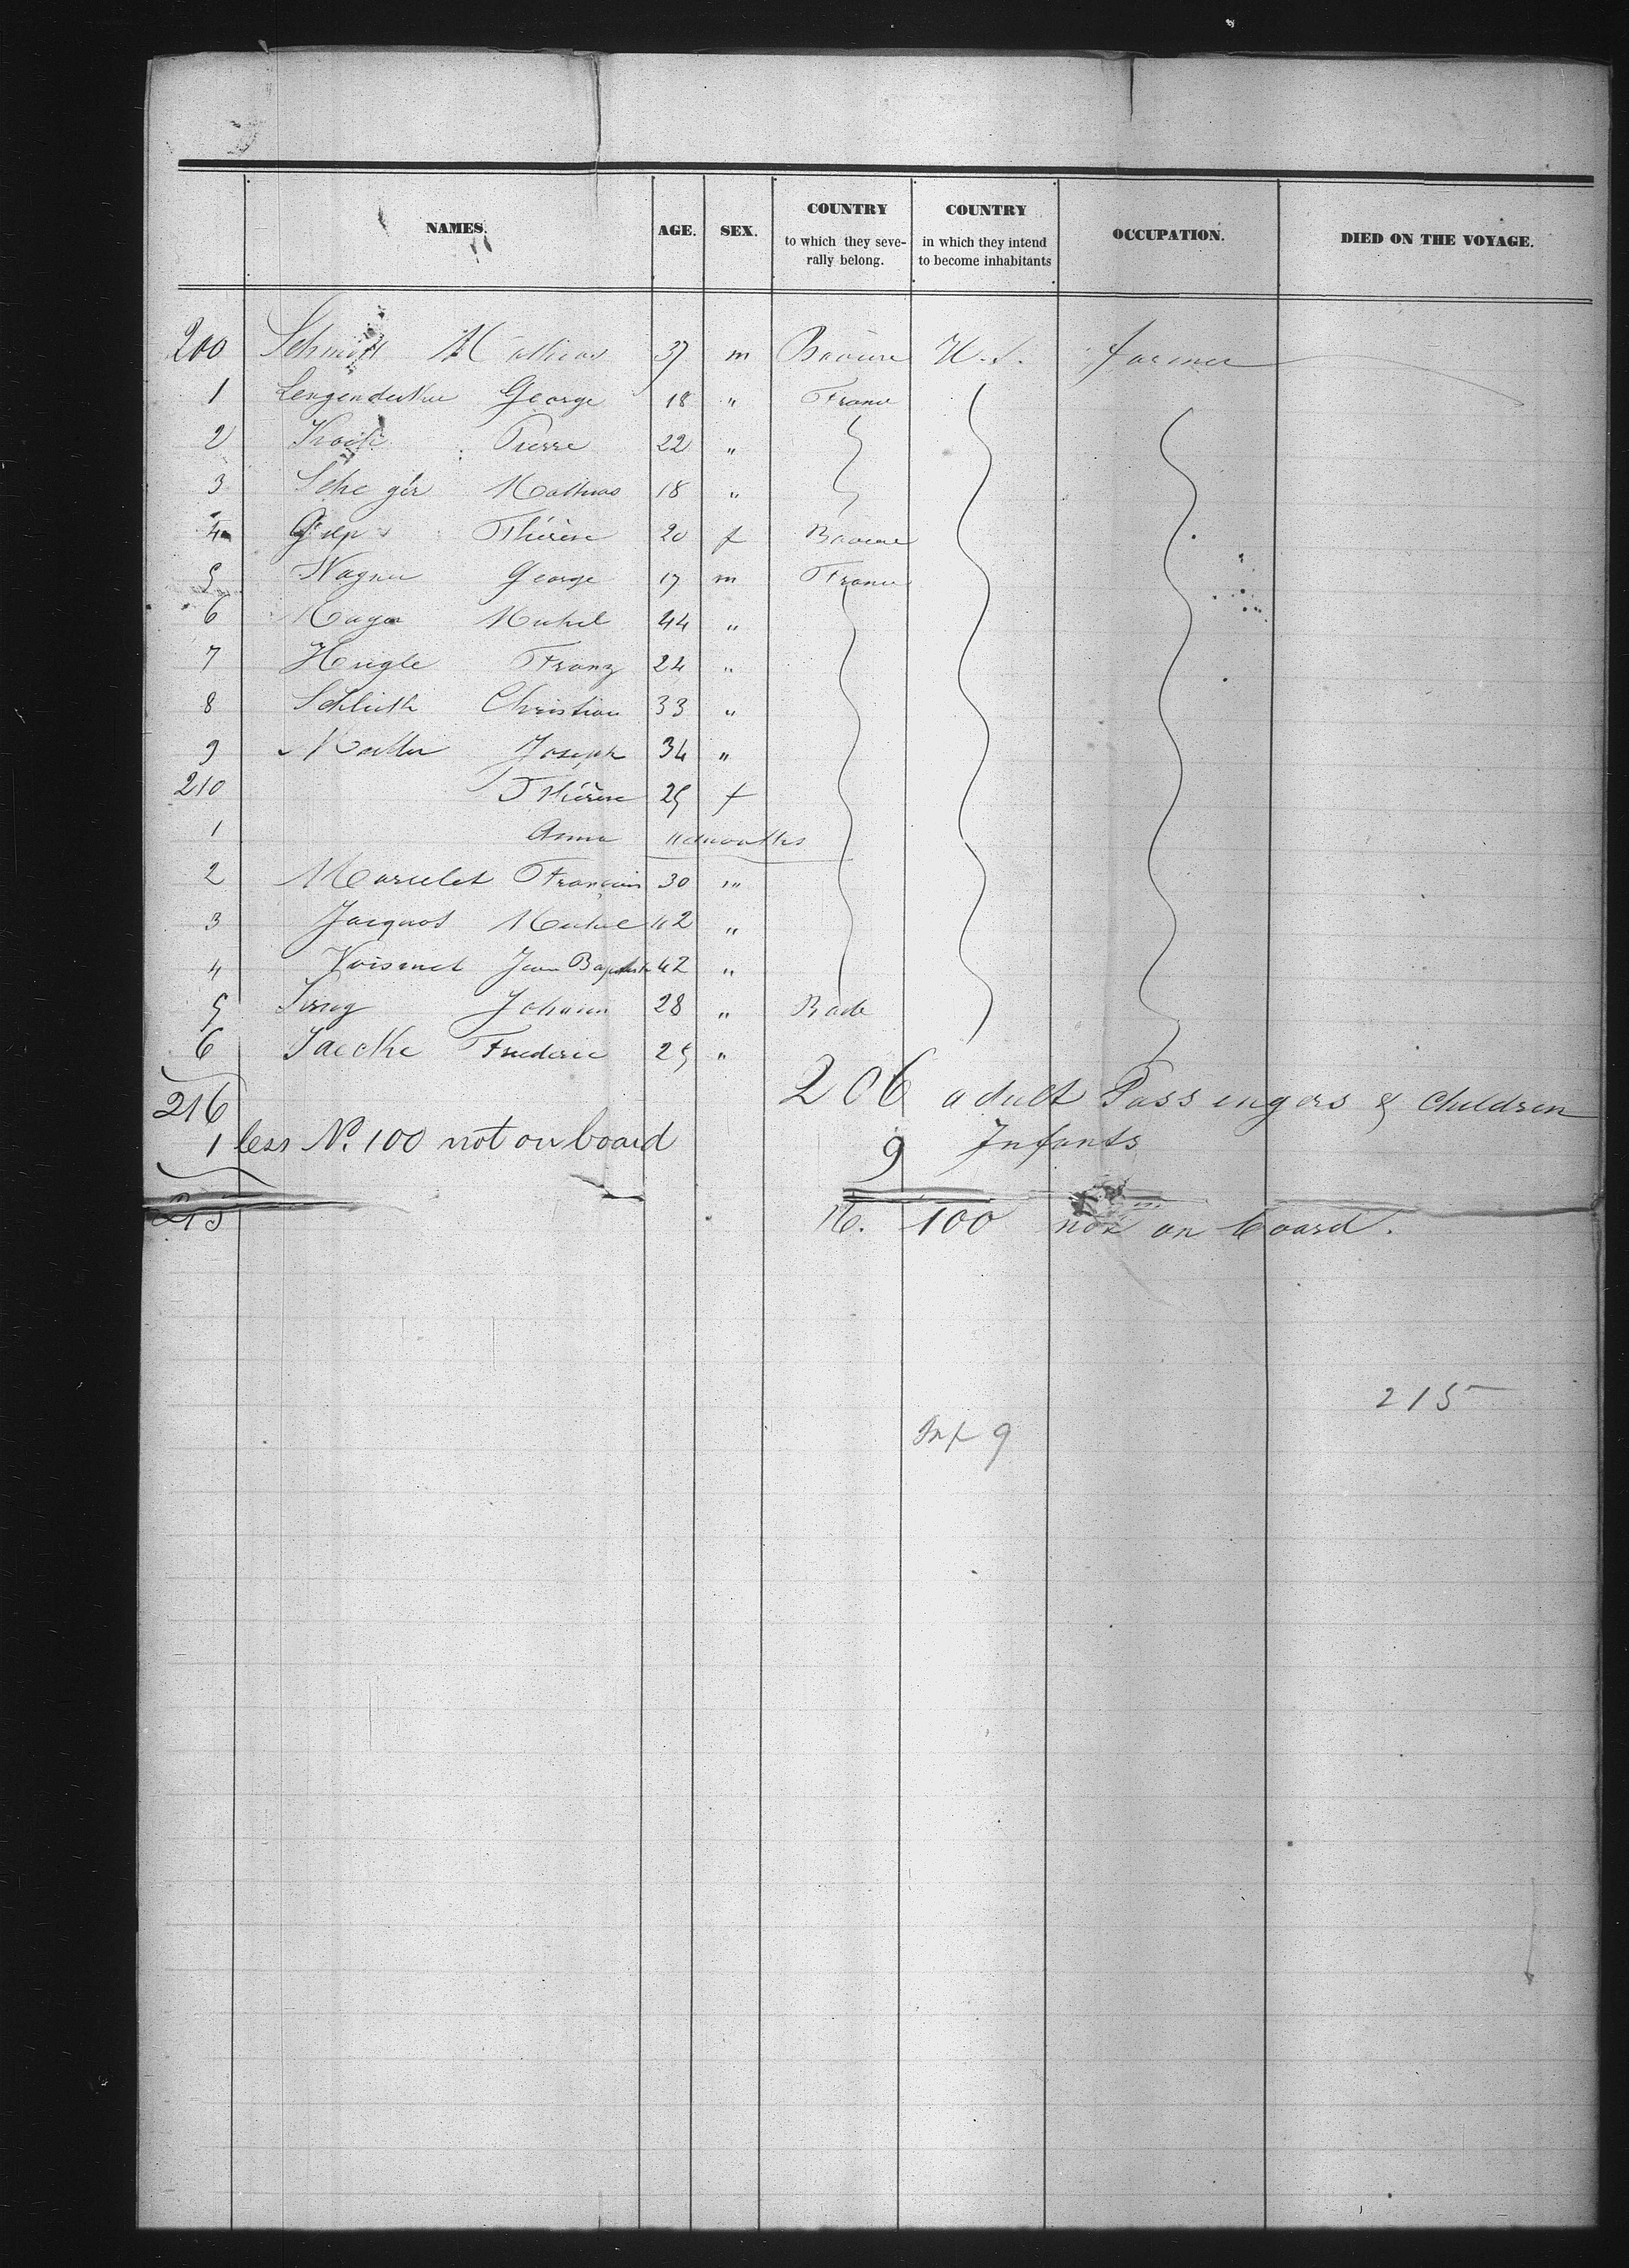 NAMES. AGE. SEX. COUNTRY to which they seve-rally belong. COUNTRY in which they intend to become inhabitants OCCUPATION. DIED ON THE VOYAGE.
200 Schmitt Mathias 37 m Baviere U.S. farmer
1 George 18 " France
2 Pierre 22 "
3 Mathias 18 "
4 Thérèse 20 f Baviere
5 Wagner George 17 m France
6 Mayer Michel 44 "
7 Hugle Franz 24 "
8 Christian 33 "
9 Muller Joseph 34 "
210 Thérèse 25 f
1 Anna 11 months
2 Marulet François 30 "
3 Jacquot Michel 42 "
4 Voisinet Jean Baptiste 42 "
5 Johann 28 " Bade
6 Jaecke Frederic 25 "
216 206 adult Passengers & Children
1 less No. 100 not on board 9 Infants
215 No. 100 not on board.
215
Inf 9